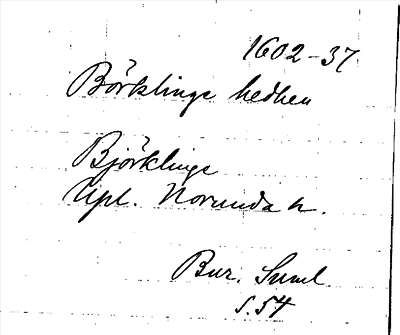 1602-37
Börklinge hedhen
Björklinge
Upl. Norunda h.
Bur. Suml.
s. 54